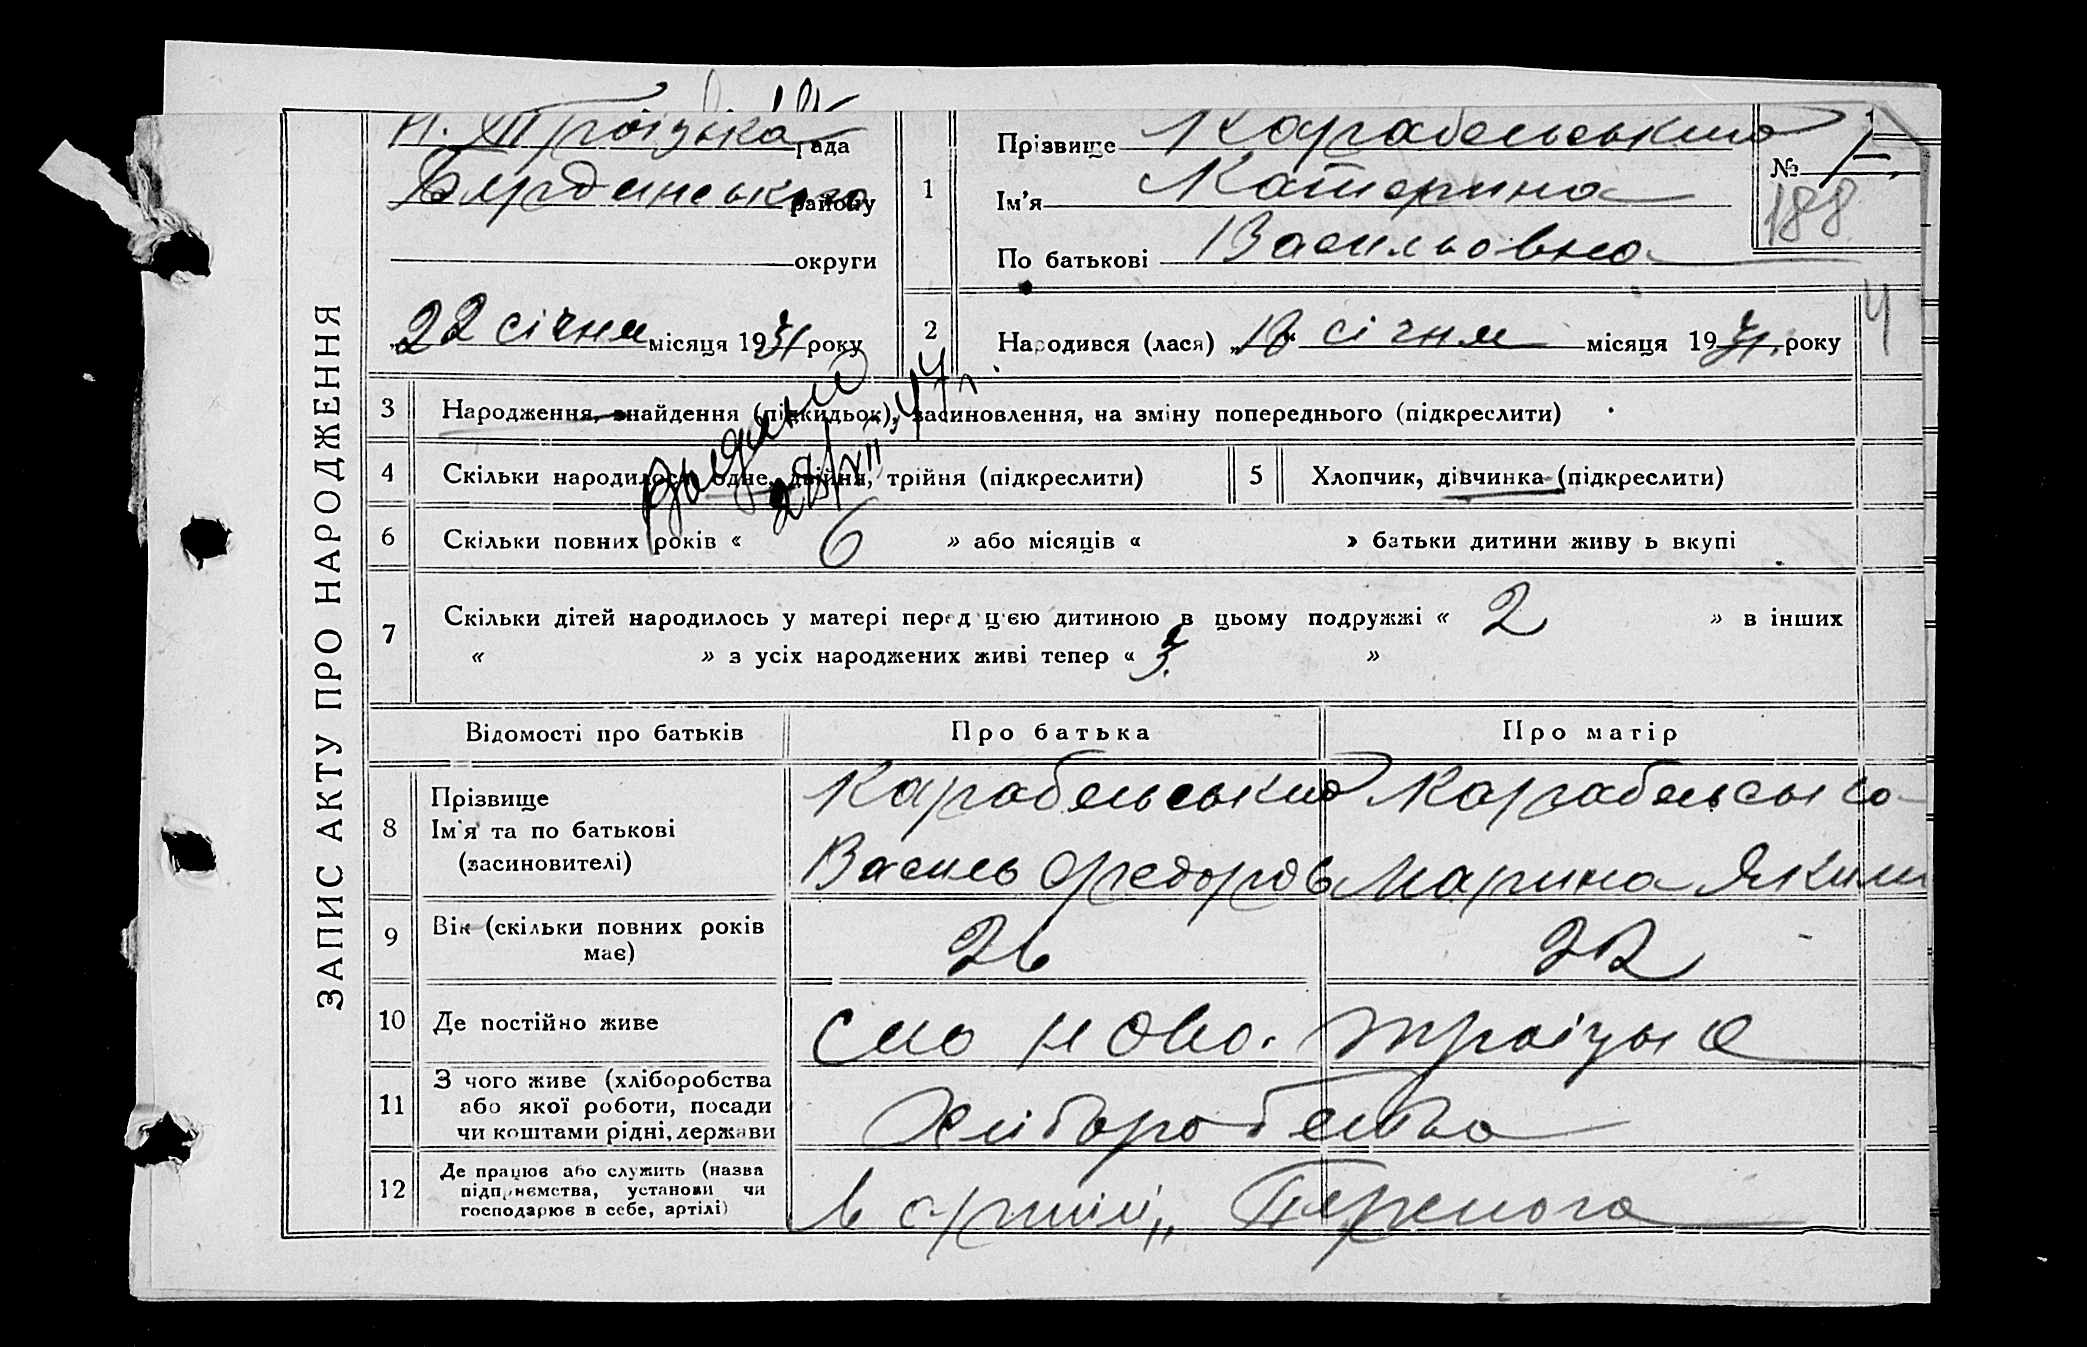 ЗАПИС АКТУ ПРО НАРОДЖЕННЯ
Н. Троіцька рада
Бердянського району
округи
22 січня місяця 1931 року
1
Прізвище Карабельський
Ім'я Катерина
По батькові Васильовна
№ 1
188
4
2
Народився (лася) „ січня місяця 1931 року
3 Народження, знайдення (підкидьок), засиновлення, на зміну попереднього (підкреслити)
4 Скільки народилось одне, двійня, трійня (підкреслити)
5 Хлопчик, дівчинка (підкреслити)
6 Скільки повних років « 6 » або місяців « » батьки дитини живуть вкупі
7 Скільки дітей народилось у матері перед цією дитиною в цьому подружжі « 2 » в інших
« » з усіх народжених живі тепер « 3 »
Відомості про батьків
Про батька
Про матір
8
Прізвище
Ім'я та по батькові
(засиновителі)
Карабельський
Василь Федоров
Карабельська
Марина Яким
9 Вік (скільки повних років має)
26
22
10 Де постійно живе
село Ново-Троіцьке
11
З чого живе (хліборобства
або якої роботи, посади
чи коштами рідні, держави
Хліборобства
12
Де працює або служить (назва
підприємства, установи чи
господарює в себе, артілі)
в артілі „Перемога
Выдано